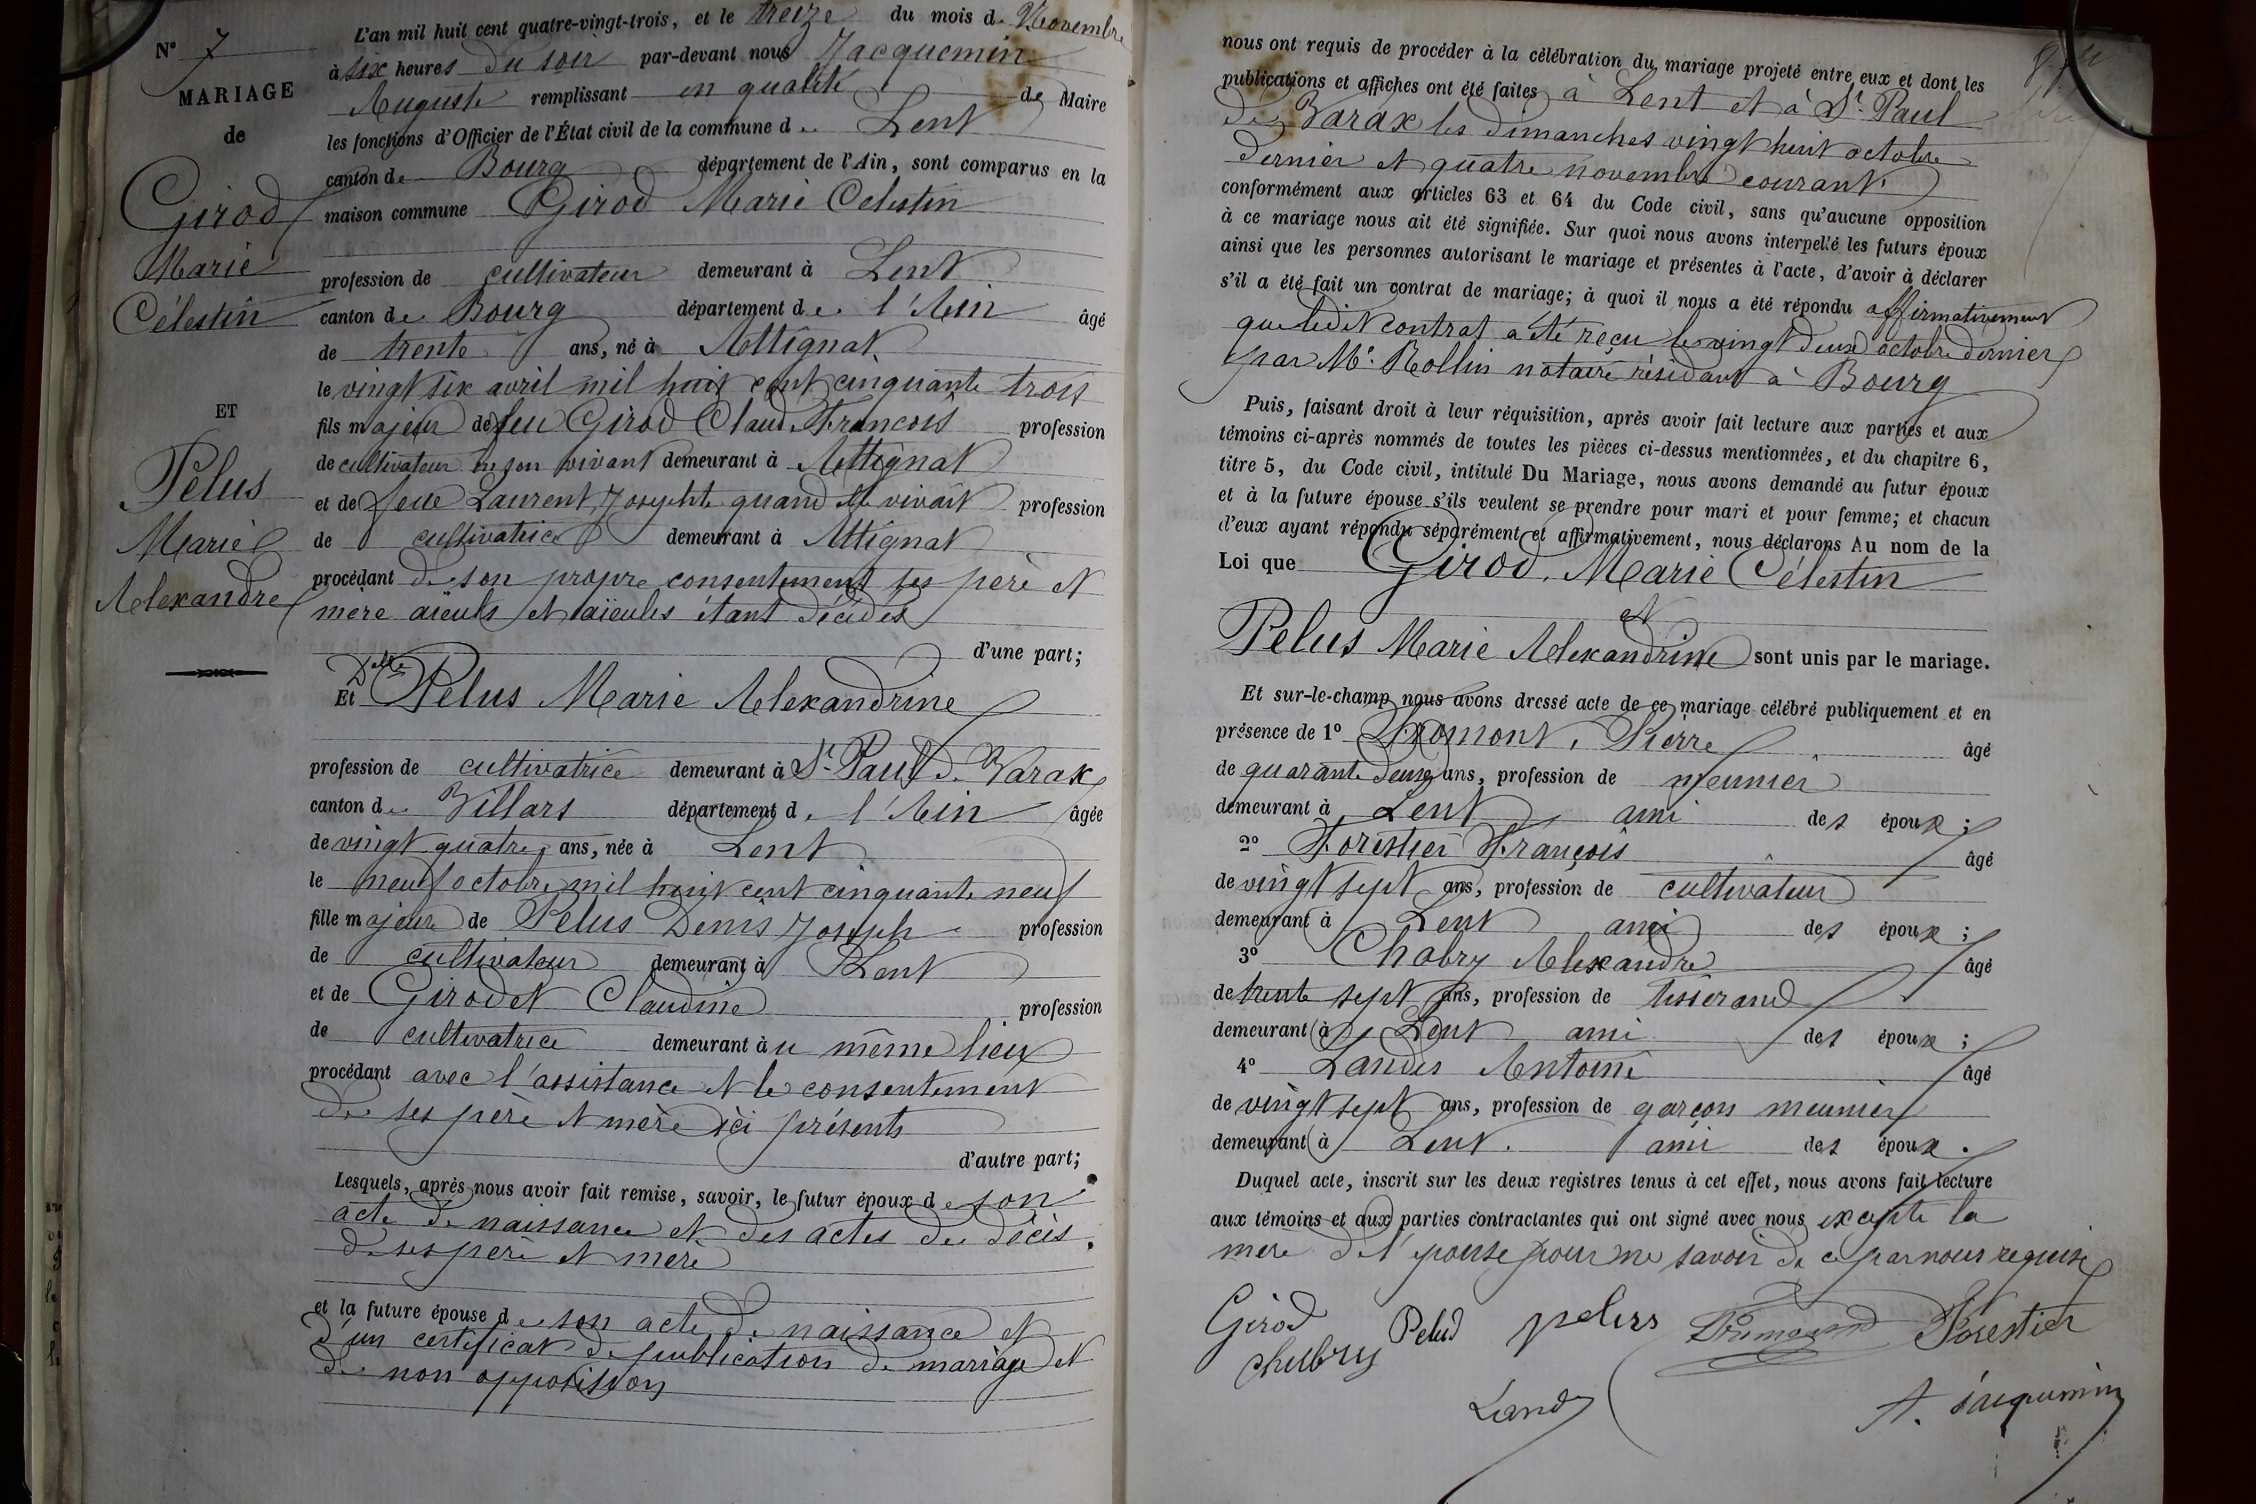 N° 7
MARIAGE
de
Girod
Marie
Célestin
ET
Pelus
Marie
Alexandre
L'an mil huit cent quatre-vingt-trois, et le treize du mois de Novembre
à six heures du soir par-devant nous Jacquemin
Auguste remplissant en qualité de Maire
les fonctions d'Officier de l'État civil de la commune de Lent
canton de Bourg département de l'Ain, sont comparus en la
maison commune Girod Marie Celestin
profession de cultivateur demeurant à Lent
canton de Bourg département de l'Ain âgé
de trente ans, né à Attignat
le vingt six avril mil huit cent cinquante trois
fils majeur de feu Girod Claude François profession
de cultivateur en son vivant demeurant à Attignat
et de feue Laurent Josephte quand elle vivait profession
de cultivatrice demeurant à Attignat
procédant de son propre consentement ses père et
mère aïeuls et aïeules étant décédés
d'une part;
Et Delle Pelus Marie Alexandrine
profession de cultivatrice demeurant à St. Paul de Varax
canton de Villars département de l'Ain âgée
de vingt quatre ans, née à Lent
le neuf octobre mil huit cent cinquante neuf
fille majeure de Pelus Denis Joseph profession
de cultivateur demeurant à Lent
et de Girodet Claudine profession
de cultivatrice demeurant au même lieu
procédant avec l'assistance et le consentement
de ses père et mère ici présents
d'autre part;
Lesquels, après nous avoir fait remise, savoir, le futur époux de son
acte de naissance et des actes de décès
de ses père et mère
et la future épouse de son acte de naissance et
d'un certificat de publication de mariage et
de non opposition
nous ont requis de procéder à la célébration du mariage projeté entre eux et dont les
publications et affiches ont été faites à Lent et à St. Paul
de Varax les dimanches vingt huit octobre
dernier et quatre novembre courant
conformément aux articles 63 et 64 du Code civil, sans qu'aucune opposition
à ce mariage nous ait été signifiée. Sur quoi nous avons interpellé les futurs époux
ainsi que les personnes autorisant le mariage et présentes à l'acte, d'avoir à déclarer
s'il a été fait un contrat de mariage; à quoi il nous a été répondu affirmativement
que ledit contrat a été reçu le vingt deux octobre dernier
par Me. Rollin notaire résidant à Bourg
Puis, faisant droit à leur réquisition, après avoir fait lecture aux parties et aux
témoins ci-après nommés de toutes les pièces ci-dessus mentionnées, et du chapitre 6,
titre 5, du Code civil, intitulé Du Mariage, nous avons demandé au futur époux
et à la future épouse s'ils veulent se prendre pour mari et pour femme; et chacun
d'eux ayant répondu séparément et affirmativement, nous déclarons Au nom de la
Loi que Girod, Marie Célestin
et
Pelus Marie Alexandrine sont unis par le mariage.
Et sur-le-champ nous avons dressé acte de ce mariage célébré publiquement et en
présence de 1° Fromont, Pierre âgé
de quarante deux ans, profession de meunier
demeurant à Lent ami des époux;
2° Forestier François âgé
de vingt sept ans, profession de cultivateur
demeurant à Lent ami des époux;
3° Chabry Alexandre âgé
de trente sept ans, profession de tisserand
demeurant à Lent ami des époux;
4° Landes Antoine âgé
de vingt sept ans, profession de garçon meunier
demeurant à Lent. ami des époux.
Duquel acte, inscrit sur les deux registres tenus à cet effet, nous avons fait lecture
aux témoins et aux parties contractantes qui ont signé avec nous excepté la
mère de l'épouse pour ne savoir de ce par nous requise
Girod Pelus pelus Forestier
chabry
Landes
A. Jacquemin